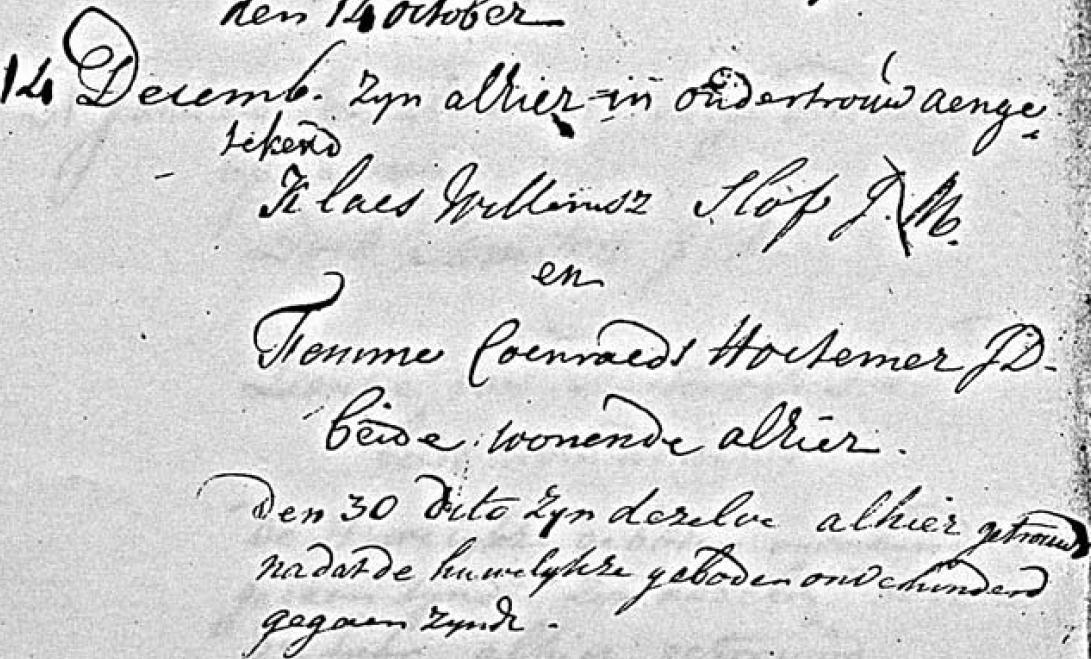 den 14 october
14 Decemb. zyn alhier in ondertrouw aenge
tekend
Klaes Willemsz Slof J. M.
en
Femme Coenraeds Hoetemer J D.
beide wonende alhier.
Den 30 dito zyn dezelve alhier getrouwd
nadat de huwelykze geboden onverhinderd
gegaen zynde.